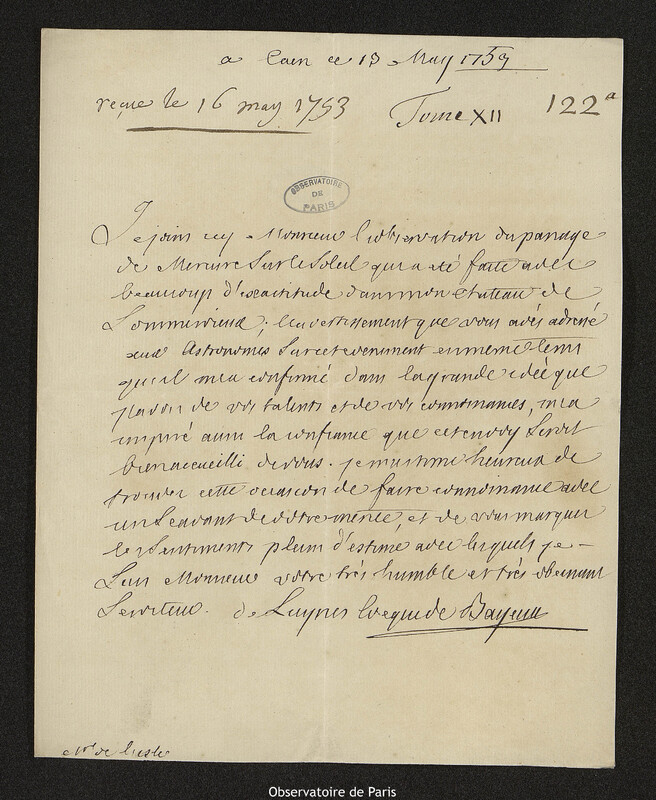 a Caen ce 13 May 1753
reçue le 16 may 1753 Tome XII 122a
OBSERVATOIRE DE PARIS
Je joins icy Monsieur l'observation du passage
de Mercure sur le Soleil qui a été faitte avec
beaucoup d'exactitude dans mon chateau de
Sommervieux; l'avertissement que vous avés adressé
aux Astronomes sur cet evenement en meme tems
qu'il m'a confirmé dans la grande idée que
j'avois de vos talents et de vos connoissances, m'a
inspiré aussi la confiance que cet envoy seroit
bien accueilli de vous. je m'estime heureux de
trouver cette occasion de faire connoissance avec
un Scavant de votre merite, et de vous marquer
les sentiments pleins d'estime avec lesquels je
suis Monsieur votre très humble et très obeissant
Serviteur. de Luynes Evêque de Bayeux
Mr. de l'isle
Observatoire de Paris